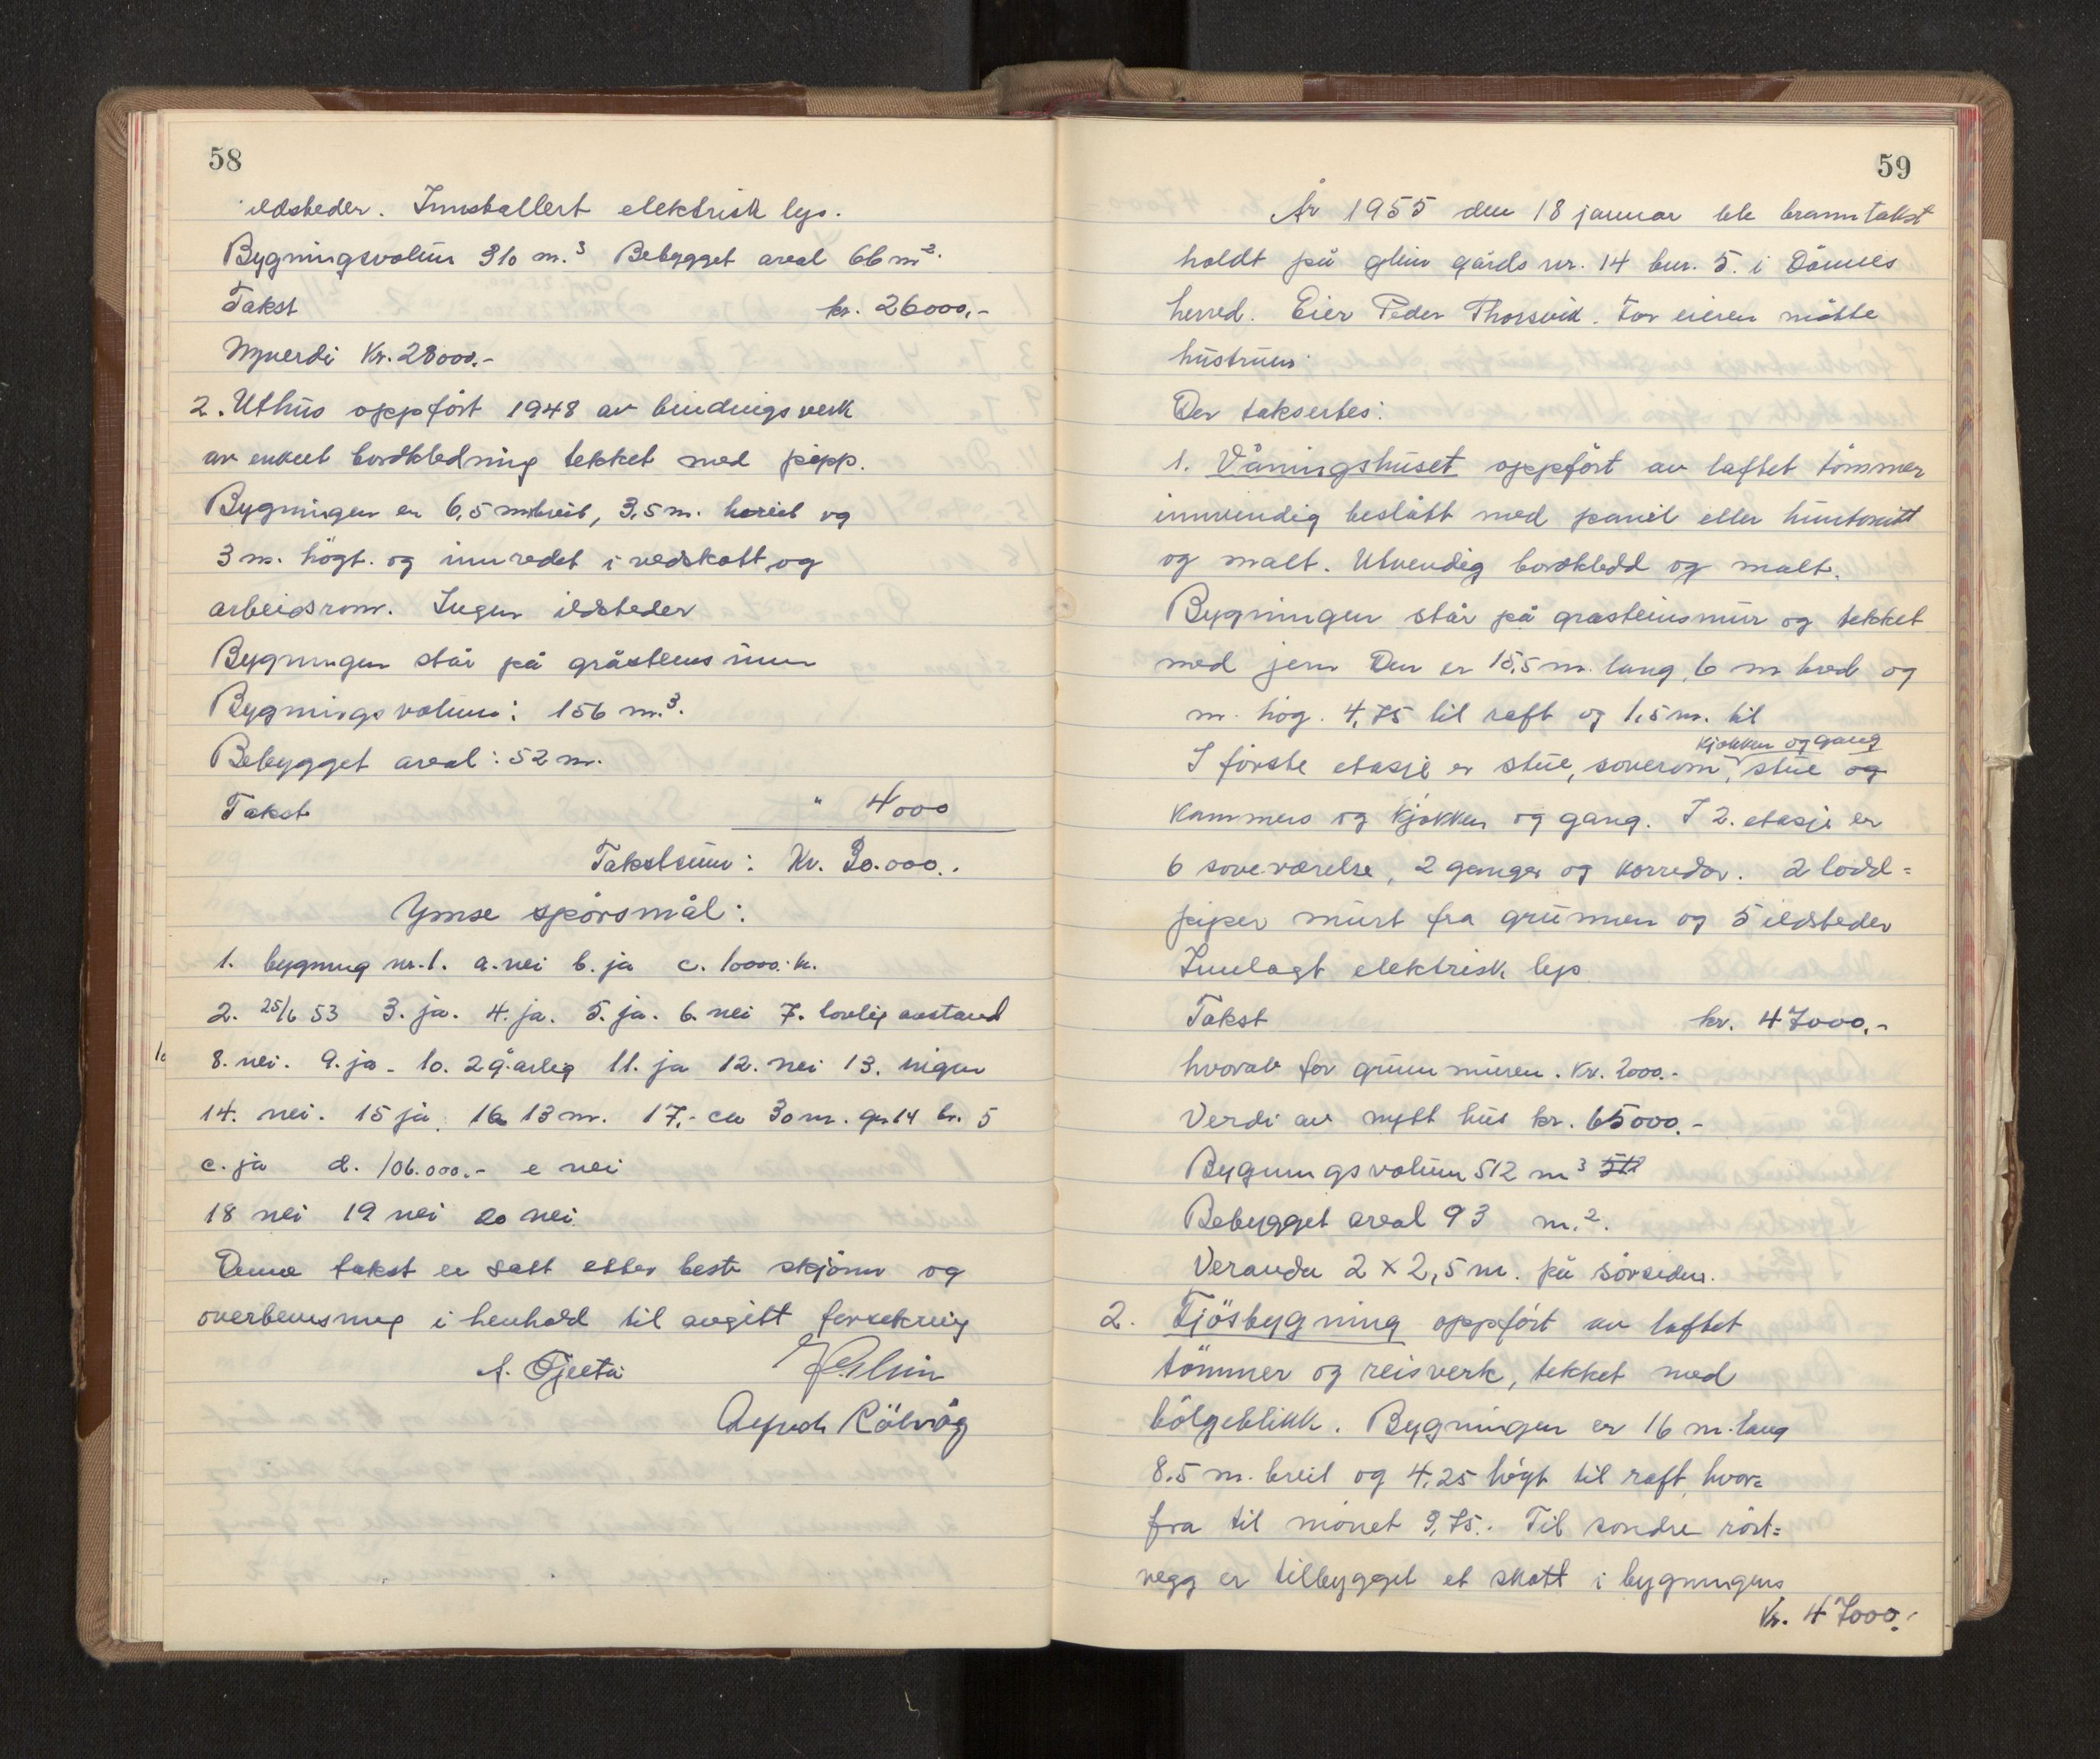 58
ildsteder. Innstallert elektrisk lys.
Bygningsvolum 310 m.³ Bebygget areal 66 m².
Takst kr. 26000,-
Nyverdi Kr. 28000.-
2. Uthus oppført 1948 av bindingsverk
av enkelt bordkledning tekket med papp.
Bygningen er 6,5 m breit, 3,5 m. og
3 m. högt. og innredet i vedskott og
arbeidsrom. Ingen ildsteder
Bygningen står på gråsteinsmur
Bygningsvolum: 156 m.³.
Bebygget areal: 52 m.
Takst " 4000
Takstsum: Kr. 30.000..
Ymse spörsmål:
1. bygning nr. 1. a. nei b. ja c. 10000.- k.
2. 25/6 53 3. ja. 4. ja. 5. ja. 6. nei 7. lovlig avstand
8. nei. 9. ja - 10. 2 g. årlig 11. ja 12. nei 13. ingen
14. nei. 15 ja. 16 13 m. 17,- ca 30 m. gr. 14 br. 5
c. ja d. 106.000.- e nei
18 nei 19 nei 20 nei
Denne takst er satt etter beste skjönn og
overbevisning i henhold til avgitt forsikring
A. Tjeltå Glein
Rölvåg
59
År 1955 den 18 januar ble branntakst
holdt på glein gårds nr. 14 bnr. 5. i Dönnes
herred. Eier Peder Thorsvik. For eieren mötte
hustruen.
Der taksertes:
1. Våningshuset oppfört av laftet tömmer
innvendig beslått med panel eller huntonitt
og malt. Utvendig bordkledd og malt.
Bygningen står på grasteinsmur og tekket
med jern Den er 15,5 m. lang, 6 m bred og
m. hög. 4,75 til raft og 1,5 m. til
kjøkken og gang
I förste etasje er stue, soverom, stue og
kammers og kjøkken og gang. I 2. etasje er
6 soveværelse, 2 ganger og korredor. 2 lodd=
piper murt fra grunnen og 5 ildsteder
Innlagt elektrisk lys
Takst kr. 47000.-
hvorav for grunnmuren. Kr. 2000.-
Verdi av nytt hus kr. 65000.-
Bygningsvolum 512 m³ 512
Bebygget areal 93 m.².
Veranda 2 x 2,5 m. på sörsiden.
2. Fjösbygning oppfört av laftet
tömmer og reisverk, tekket med
bölgeblikk. Bygningen er 16 m. lang
8.5 m. breit og 4,25 högt til raft, hvor=
fra til mönet 3,75.. Til söndre röst=
vegg er tilbygget et skott i bygningens
Kr. 47000.-